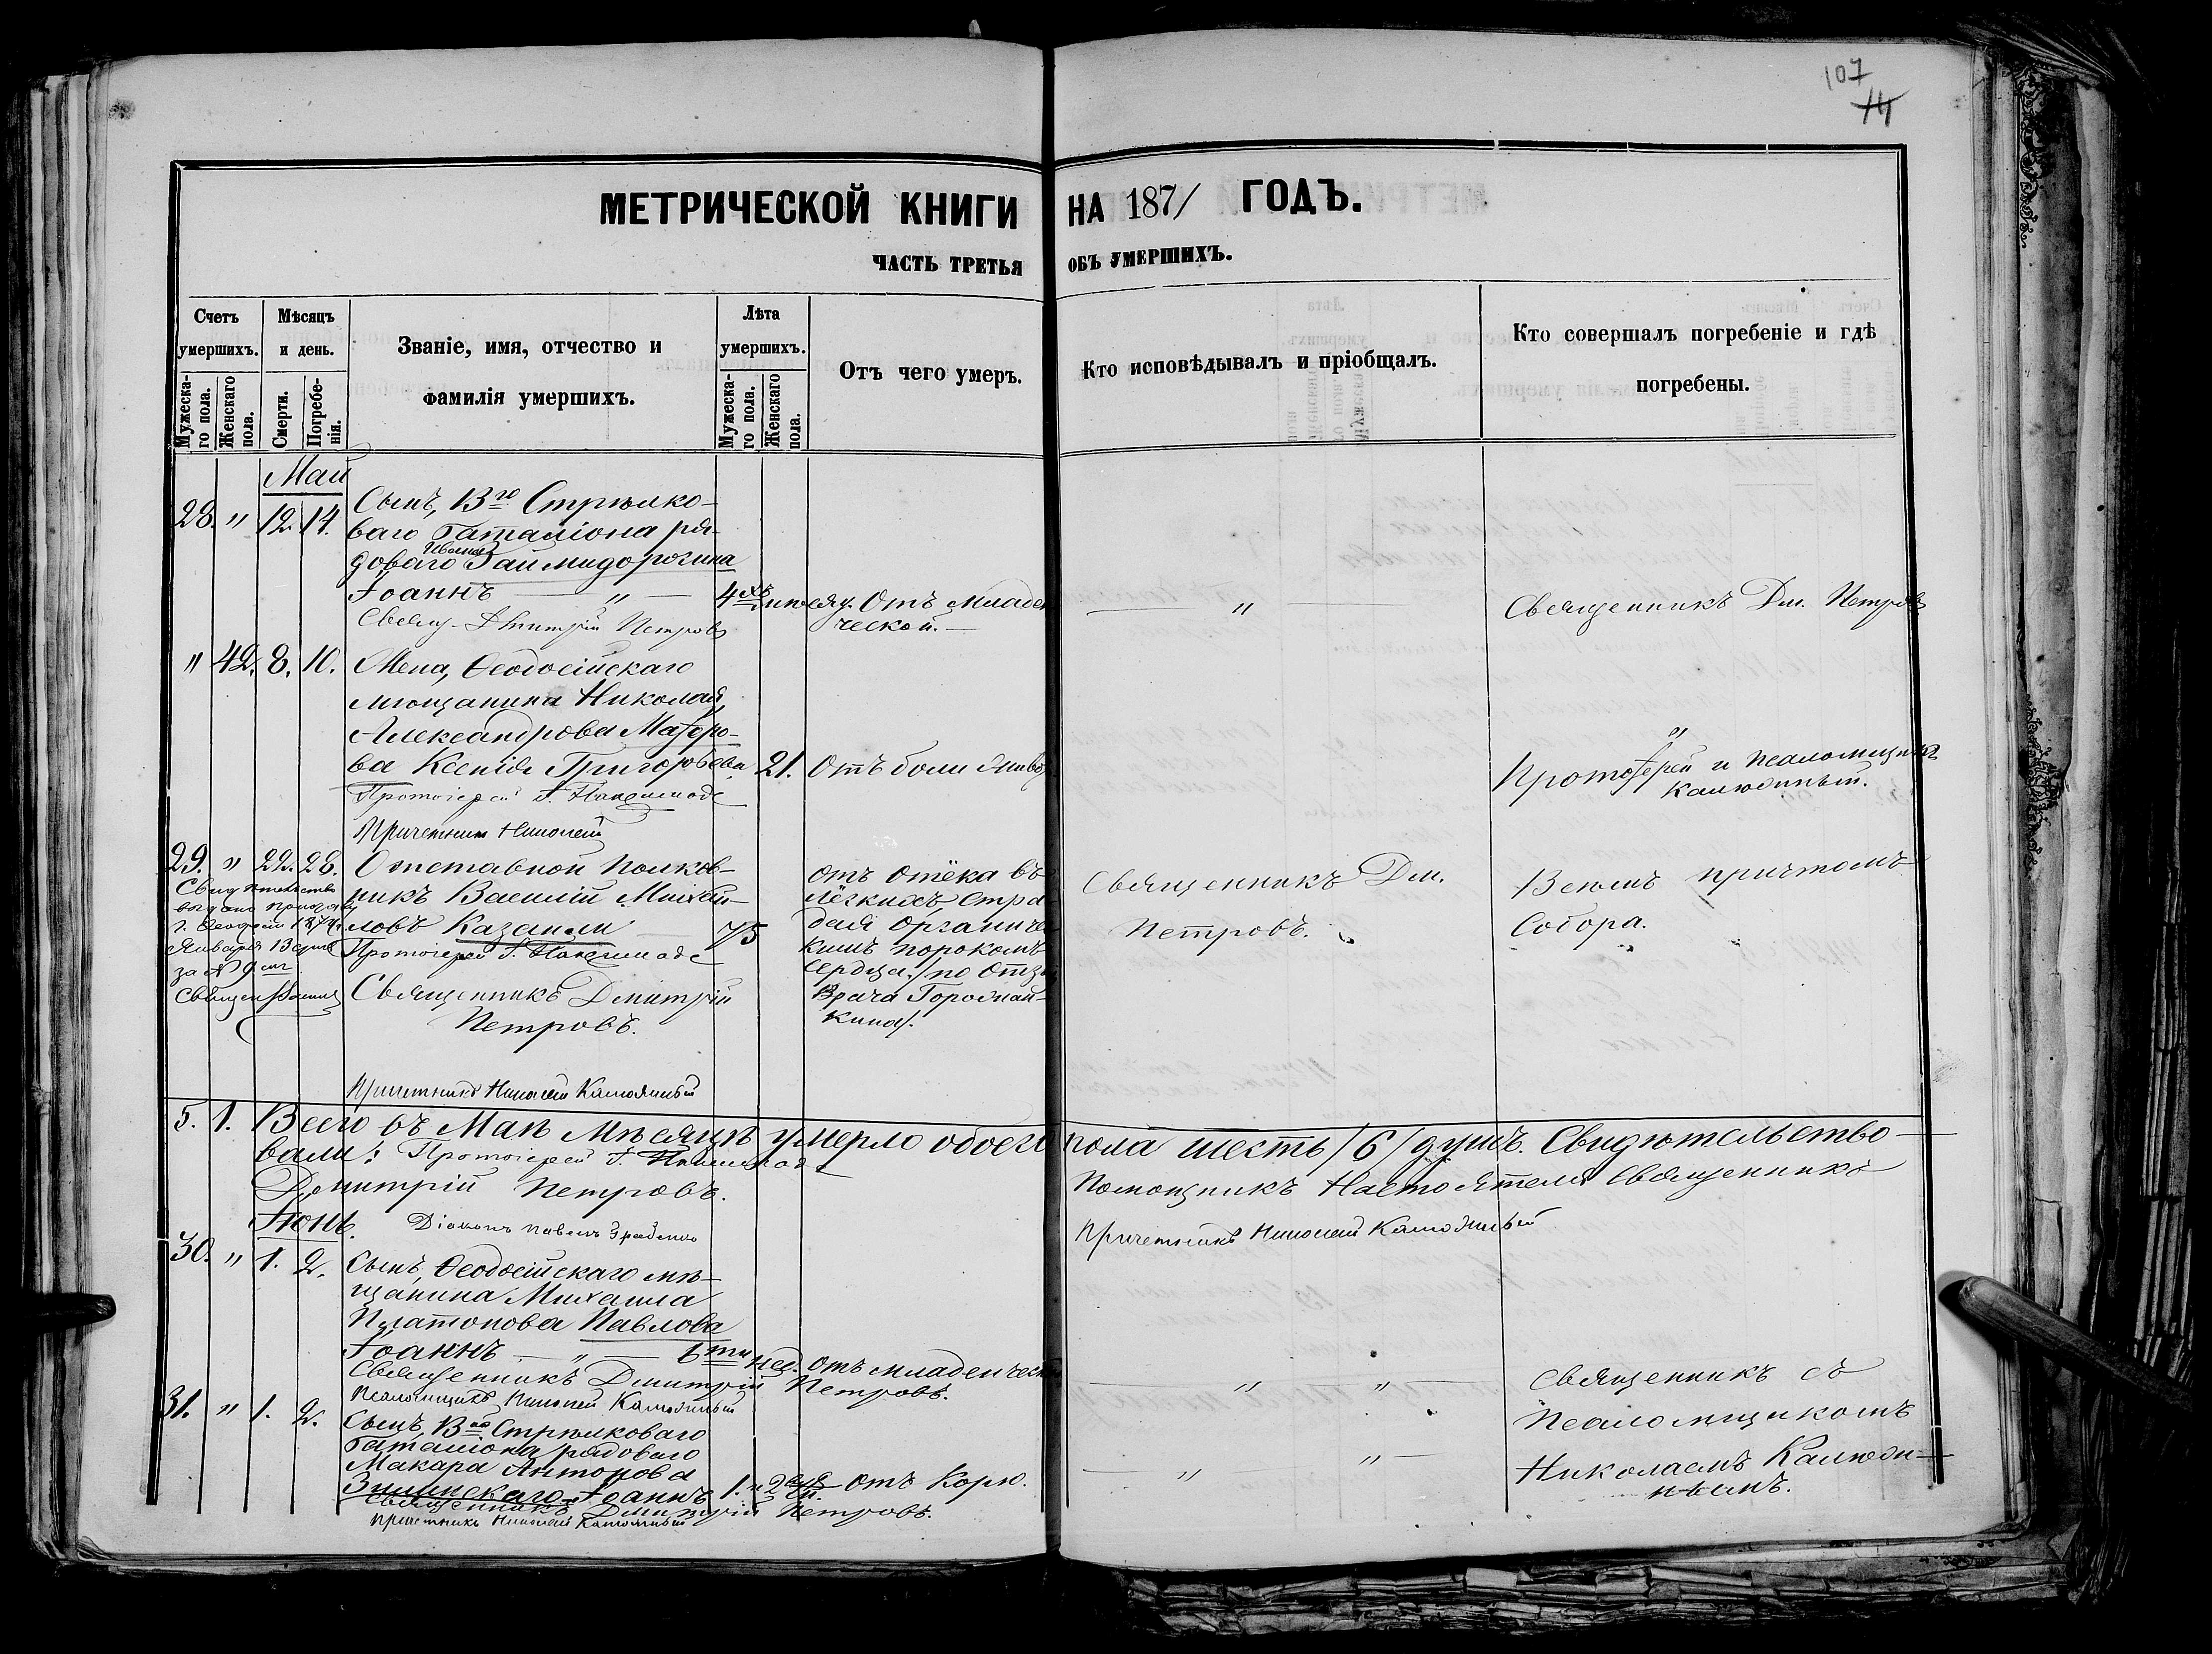 107
14
МЕТРИЧЕСКОЙ КНИГИ НА 1871 ГОДЪ.
ЧАСТЬ ТРЕТЬЯ ОБЪ УМЕРШИХЪ.
Счетъ умершихъ.
Мужеска-го пола.
Женскаго пола.
Мѣсяцъ и день.
Смерти.
Погребе-нія.
Званіе, имя, отчество и фамилія умершихъ.
Лѣта умершихъ.
Мужеска-го пола.
Женскаго пола.
Отъ чего умеръ.
Кто исповѣдывалъ и пріобщалъ.
Кто совершалъ погребеніе и гдѣ погребены.
Май
28. " 12. 14.
Сынъ, 13го Стрѣлко-
ваго баталіона ря-
доваго
Іоаннъ — " — 4хъ мѣсяц. Отъ младен
ческой. —
— " —
Священникъ Дм. Петровъ
Свящ. Дмитрій Петровъ
" 42. 8. 10.
Жена, Ѳеодосійскаго
мѣщанина Николая
Александрова
ва Ксенія Григорьева 21. Отъ боли
"
Протоіерей и псаломщикъ
Калюжный.
Протоіерей І.
Причетникъ Николай
29. " 22. 28.
Отставной полков-
никъ Василій Михай-
ловъ Казели 75
отъ отёка въ
лёгкихъ, стра
дая органиче
кимъ порокомъ
сердца, /по отзы
врача Городнай-
кина/.
Священникъ Дм.
Петровъ.
Всемъ причтомъ
Собора.
Свидѣтельство
выдано
г. Ѳеодосіи 1874
Января 13 дня
за № 9
Протоіерей І.
Священникъ Дмитрій
Петровъ.
Причетникъ Николай Калюжный
5. 1. Всего въ Маѣ мѣсяцѣ умерло обоего пола шесть /6/ душъ. Свидѣтельство-
вали: Протоіерей І.
Помощникъ Настоятеля Священникъ
Дмитрій Петровъ.
Діаконъ Павелъ
Причетникъ Николай Калюжный
Іюнь.
30. " 1. 2.
Сынъ, Ѳеодосійскаго мѣ-
щанина Михаила
Платонова Павлова
Іоаннъ — " — 6ти нед. Отъ младенческ
— " — " —
Священникъ съ
Псаломщикомъ
Николаемъ Калюж-
нымъ.
Священникъ Дмитрій Петровъ.
Псаломщикъ Николай Калюжный
31. " 1. 2.
Сынъ, 13го Стрѣлковаго
баталіона рядоваго
Макара Антонова
Зилинскаго Іоаннъ 1. и 2 Отъ Кори.
— " — " —
Священникъ Дмитрій Петровъ.
Причетникъ Николай Калюжный